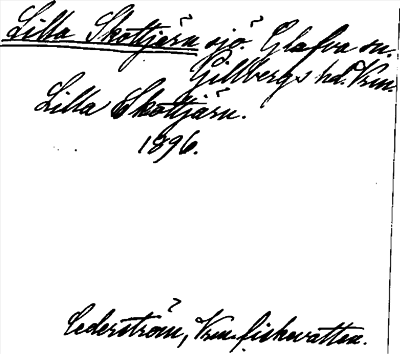 Lilla Skottjärn sjö. Glafva sn.
Gillbergs hd. Vrm.
Lilla Skottjärn.
1896.
Cederström, Vrm. fiskevatten.